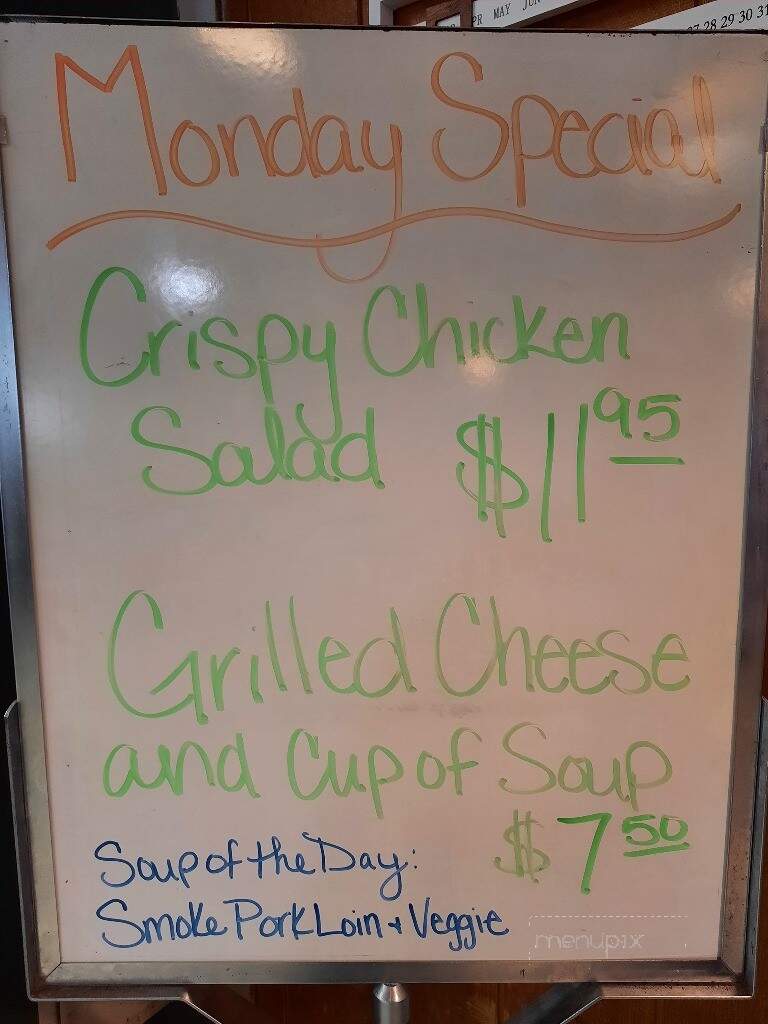 PR MAY JUN
27 28 29 30 31
Monday Special
Crispy Chicken
Salad $11 95
Grilled Cheese
and Cup of Soup
$7 50
Soup of the Day:
Smoke Pork Loin + Veggie
menupix